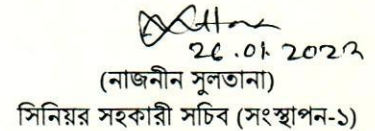 26.01.2023
(নাজনীন সুলতানা)
সিনিয়র সহকারী সচিব (সংস্থাপন-১)